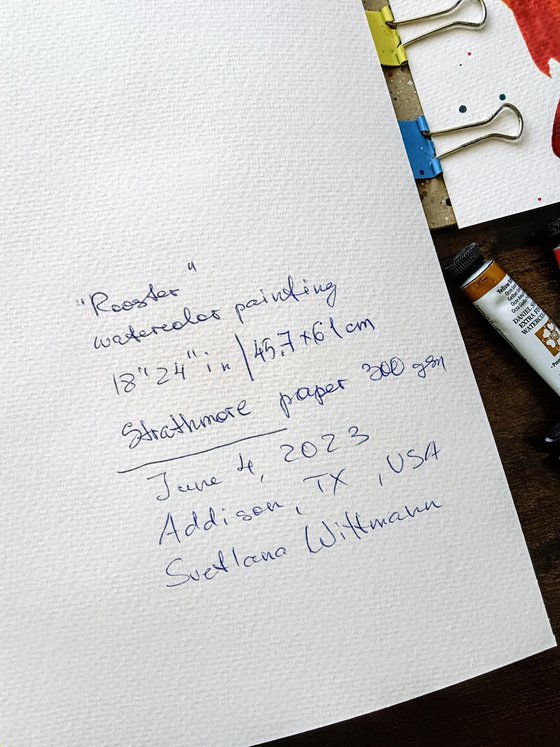 "Rooster"
watercolor painting
18"24" in | 45,7×61 cm
Strathmore paper 300 gsm
June 4, 2023
Addison, TX, USA
Svetlana Wittmann
DANIEL SM
EXTRA FINE
WATERCO